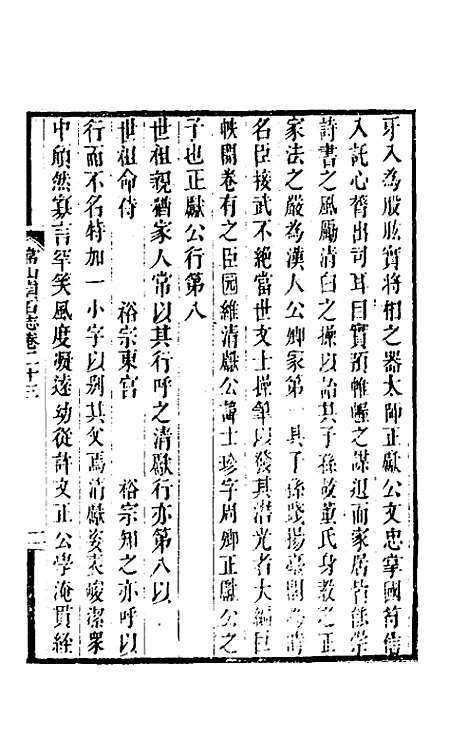 牙入為股肱實將相之器太師正獻公文忠掌國符信
入託心膂出司耳目實預帷幄之謀退而家居皆能學
詩書之風勵清白之操以詒其子孫故董氏身教之正
家法之嚴為漢人公卿家第一其子孫踐揚臺閣為時
名臣接武不絕當世文士操筆以發其潛光者大編巨
帙開卷有之臣園維清獻公諱士珍字周卿正獻公之
子也正獻公行第八
世祖視猶家人常以其行呼之清獻行亦第八以
世祖命侍　裕宗東宮　裕宗知之亦呼以
行而不名特加一小字以別其父焉清獻姿表峻潔衆
中頎然寡言罕笑風度凝遠幼從許文正公學淹貫經
常山貞石志卷二十三
二